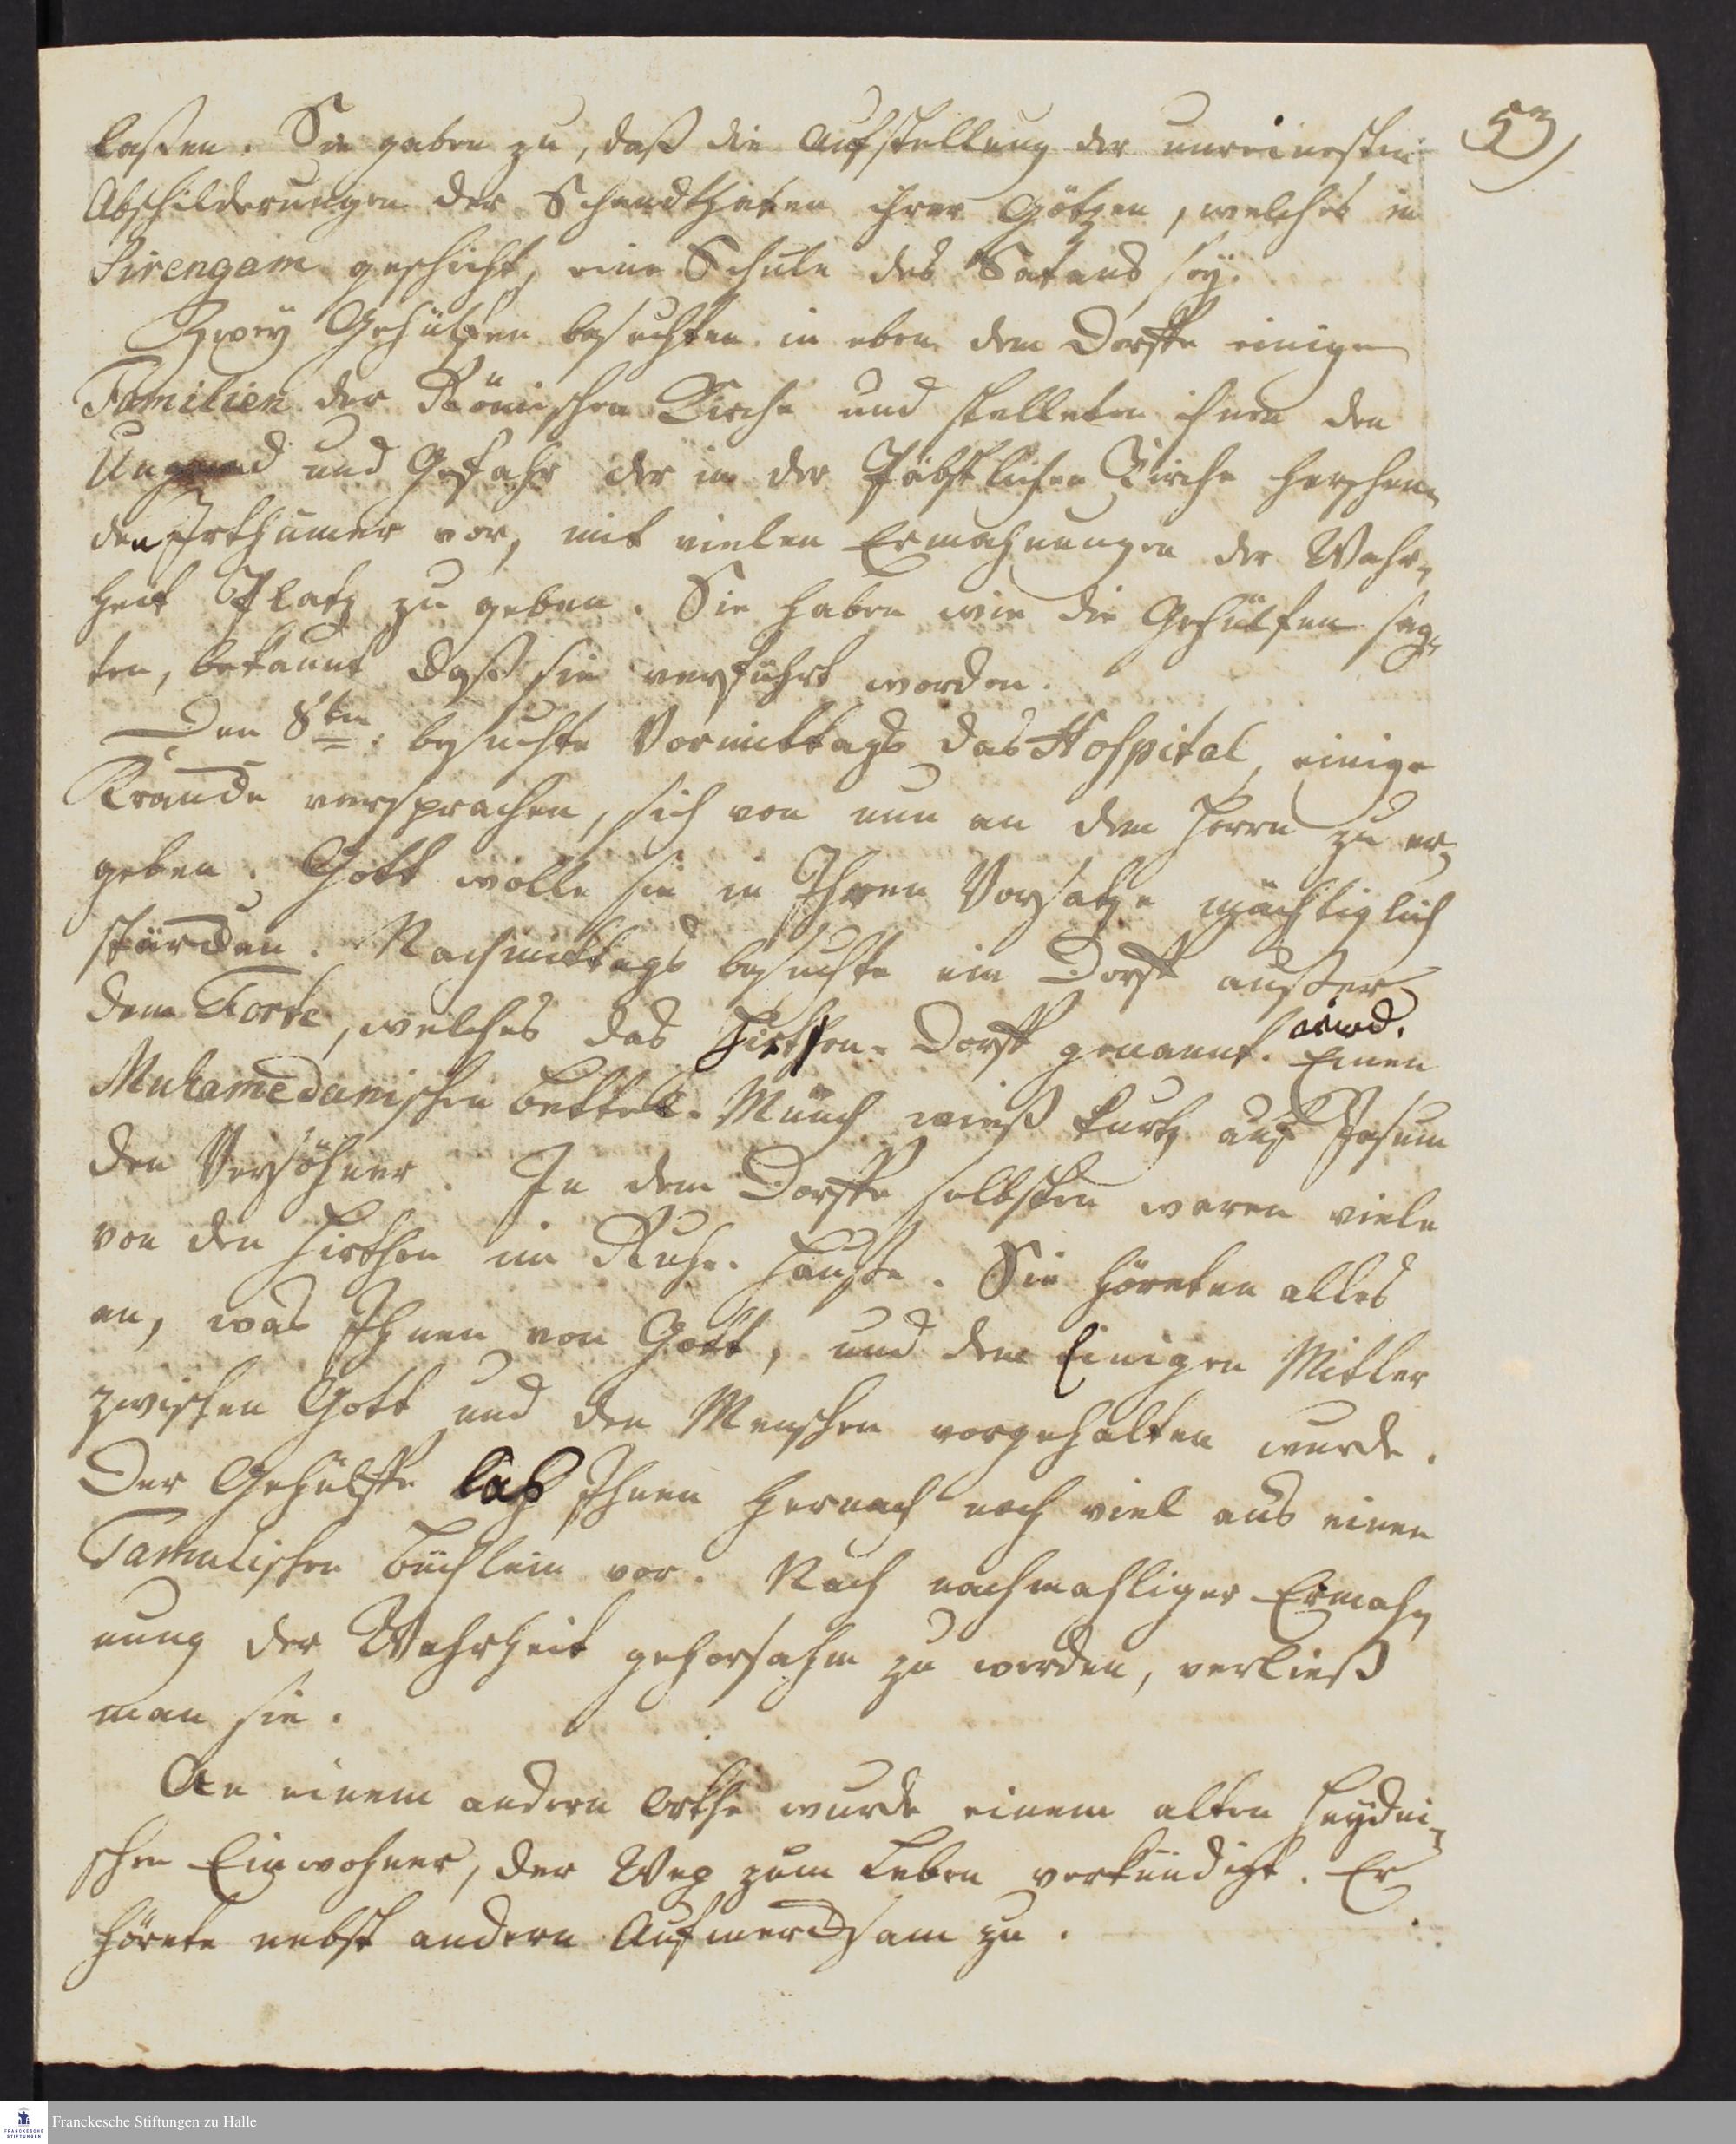 53
laßen. Sie gaben zu, daß die Aufstellung der unreinesten
Abschilderungen der Schandthaten ihrer Götzen, welches in
Sirengam geschicht, eine Schule des Satans sey.
Zwey Gehülfen besuchten in eben dem Dorffe einige
Familien der Römischen Kirche und stelleten ihnen den
Ungrund und Gefahr der in der Päbstlichen Kirche herschen¬
den Irthümer vor, mit vielen Ermahnungen der Wahr¬
heit Platz zu geben. Sie haben wie die Gehülfen sag¬
ten, bekannt daß sie verführt worden.
Den 8ten. besuchte Vormittags das Hospital, einige
Krancke versprachen, sich von nun an dem Herrn zu er¬
geben. Gott wolle sie in Ihren Vorsatze mächtiglich
stärcken. Nachmittags besuchte ein Dorff außer
dem Forte, welches das Hirthen-Dorff genannt wird. Einen
Muhamedanischen Bettel-Münch wieß kurtz auf Jesum
den Versöhner. In dem Dorffe selbsten waren viele
von den Hirthen im Ruhe-Hauße. Sie höreten alles
an, was Ihnen von Gott, und dem Einigen Mitler
zwischen Gott und den Menschen vorgehalten wurde.
Der Gehülffe las Ihnen hernach noch viel aus einen
Tamulischen Büchlein vor. Nach nachmahliger Ermah¬
nung der Wahrheit gehorsahm zu werden, verließ
man sie.
An einem andern Orthe wurde einem alten Heydni¬
schen Einwohner, der Weg zum Leben verkündigt. Er
hörete nebst andern Aufmercksam zu.
FRANCKESCHE
STIFTUNGEN
Franckesche Stiftungen zu Halle